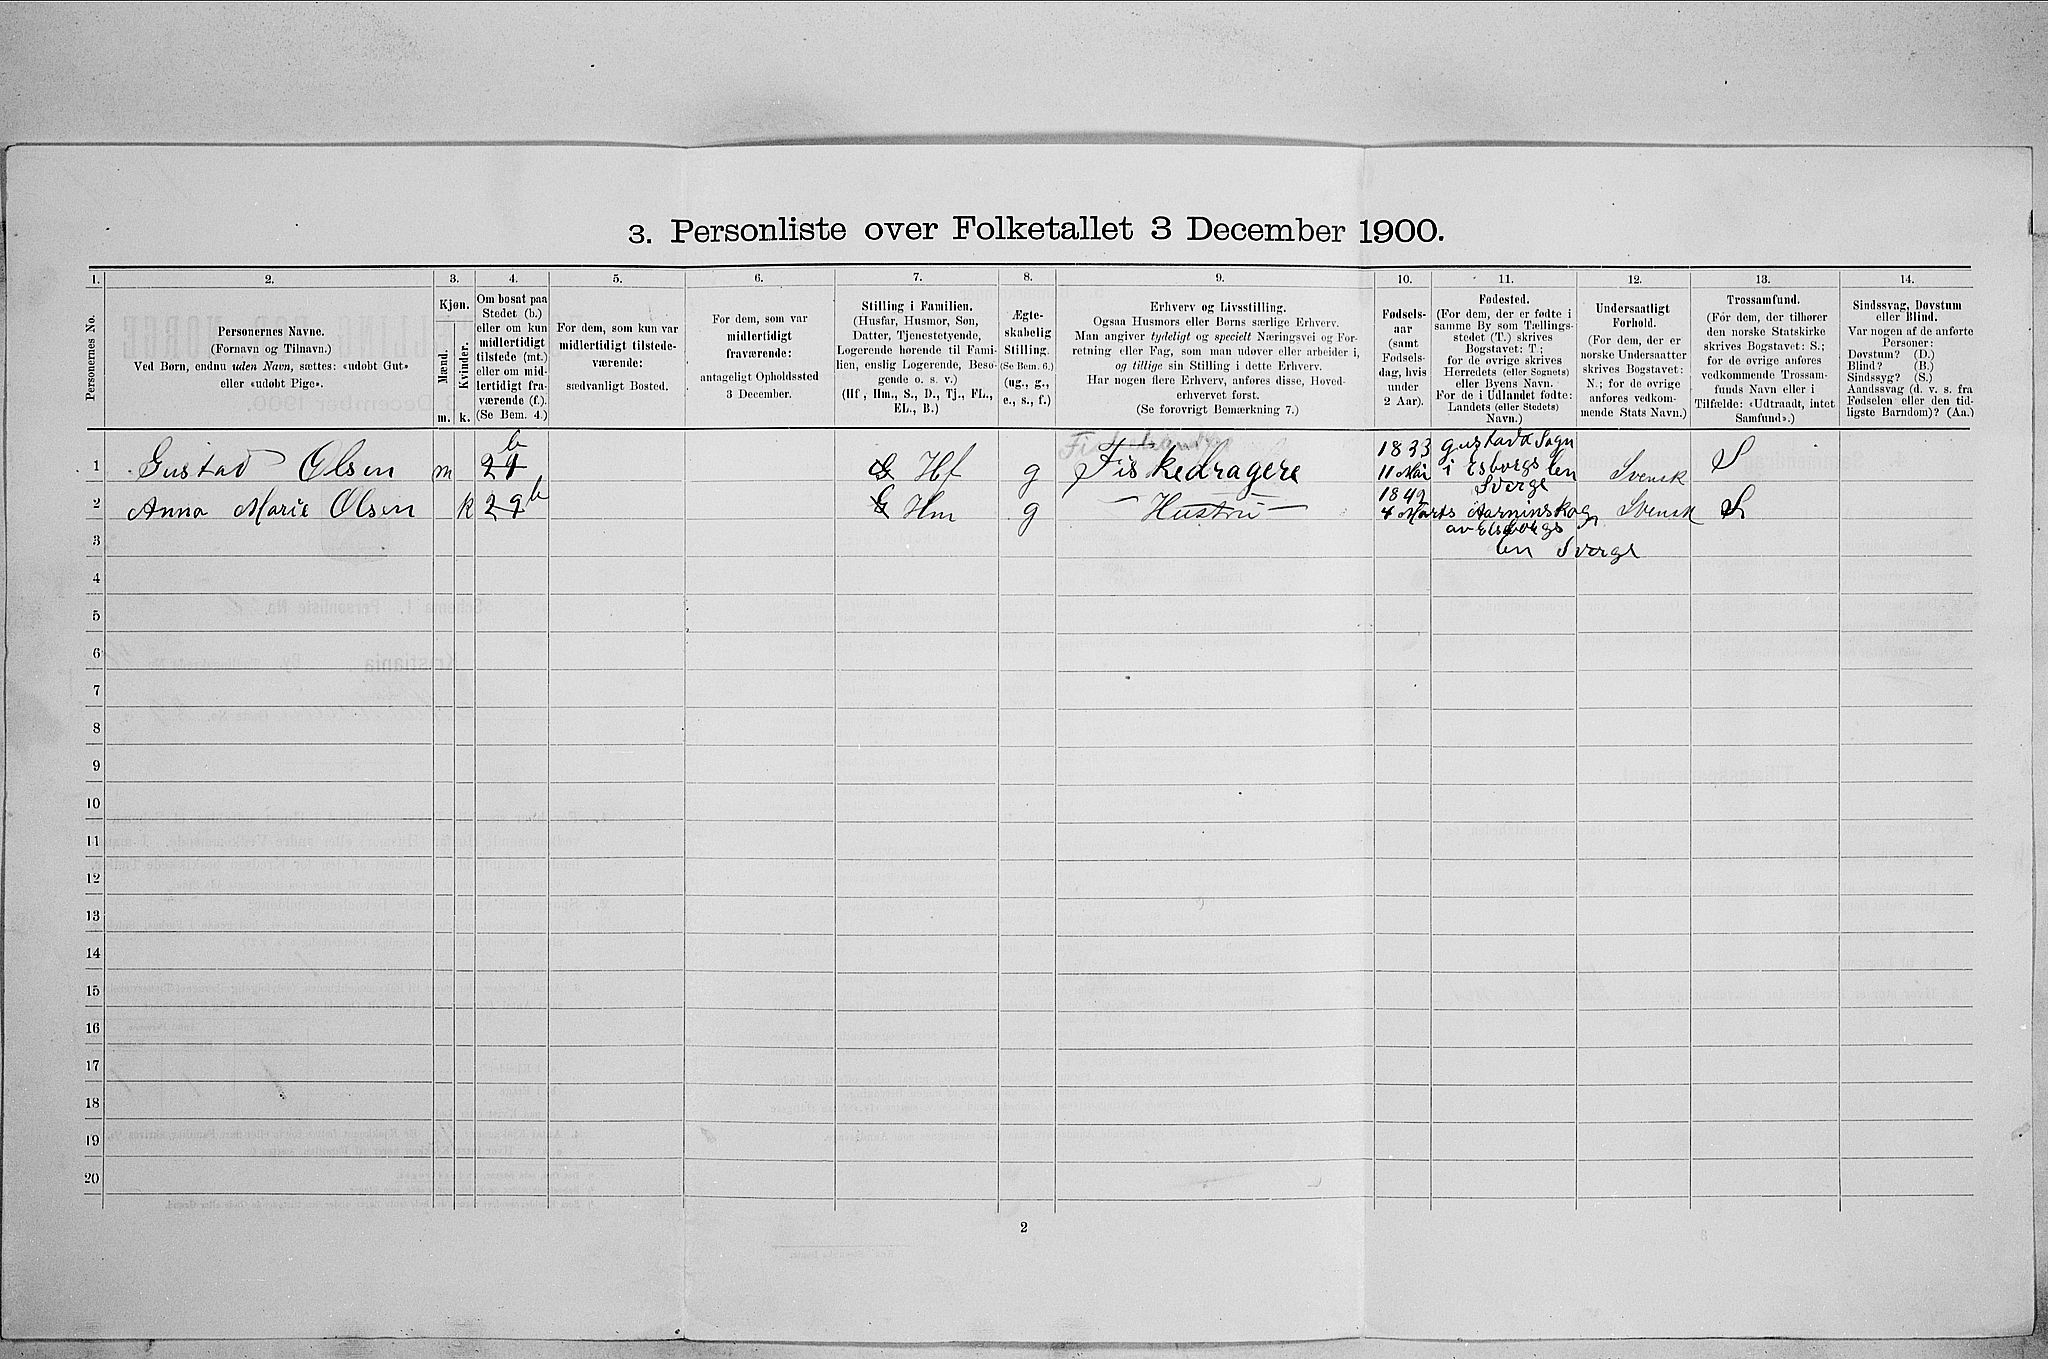 3. Personliste over Folketallet 3 December 1900.
1. 2. 3. 4. 5. 6. 7. 8. 9. 10. 11. 12. 13. 14.
Personernes No.
Personernes Navne.
(Fornavn og Tilnavn.)
Ved Børn, endnu uden Navn, sættes: «udøbt Gut»
eller «udøbt Pige».
Kjøn.
Mænd.
Kvinder.
m. k.
Om bosat paa
Stedet (b.)
eller om kun
midlertidigt
tilstede (mt.)
eller om mid-
lertidigt fra-
værende (f.).
(Se Bem. 4.)
For dem, som kun var
midlertidigt tilstede-
værende:
sædvanligt Bosted.
For dem, som var
midlertidigt
fraværende:
antageligt Opholdssted
3 December.
Stilling i Familien.
(Husfar, Husmor, Søn,
Datter, Tjenestetyende,
Logerende hørende til Fami-
lien, enslig Logerende, Besø-
gende o. s. v.)
(Hf, Hm., S., D., Tj., FL.,
EL., B.)
Ægte-
skabelig
Stilling.
(Se Bem. 6.)
(ug., g.,
e., s., f.)
Erhverv og Livsstilling.
Ogsaa Husmors eller Børns særlige Erhverv.
Man angiver tydeligt og specielt Næringsvei og For-
retning eller Fag, som man udøver eller arbeider i,
og tillige sin Stilling i dette Erhverv.
Har nogen flere Erhverv, anføres disse, Hoved-
erhvervet først.
(Se forøvrigt Bemærkning 7.)
Fødsels-
aar
(samt
Fødsels-
dag, hvis
under
2 Aar).
Fødested.
(For dem, der er fødte i
samme By som Tællings-
stedet (T.) skrives
Bogstavet: T;
for de øvrige skrives
Herredets (eller Sognets)
eller Byens Navn.
For de i Udlandet fødte:
Landets (eller Stedets)
Navn.)
Undersaatligt
Forhold.
(For dem, der er
norske Undersaatter
skrives Bogstavet:
N.; for de øvrige
anføres vedkom-
mende Stats Navn.)
Trossamfund.
(For dem, der tilhører
den norske Statskirke
skrives Bogstavet: S.;
for de øvrige anføres
vedkommende Trossam-
funds Navn eller i
Tilfælde: «Udtraadt, intet
Samfund».)
Sindssvag, Døvstum
eller Blind.
Var nogen af de anførte
Personer:
Døvstum? (D.)
Blind? (B.)
Sindssyg? (S.)
Aandssvag (d. v. s. fra
Fødselen eller den tid-
ligste Barndom)? (Aa.)
1 Gustad Olsen m b Hf g Fiskedragere 1833 11 Mai gustads Sogn i Esborgs len Sverge Svensk S
2 Anna Marie Olsen k b Hm g — Hustru — 1849 4 Marts av Elsborgs len Sverge Svensk S
3
4
5
6
7
8
9
10
11
12
13
14
15
16
17
18
19
20
2